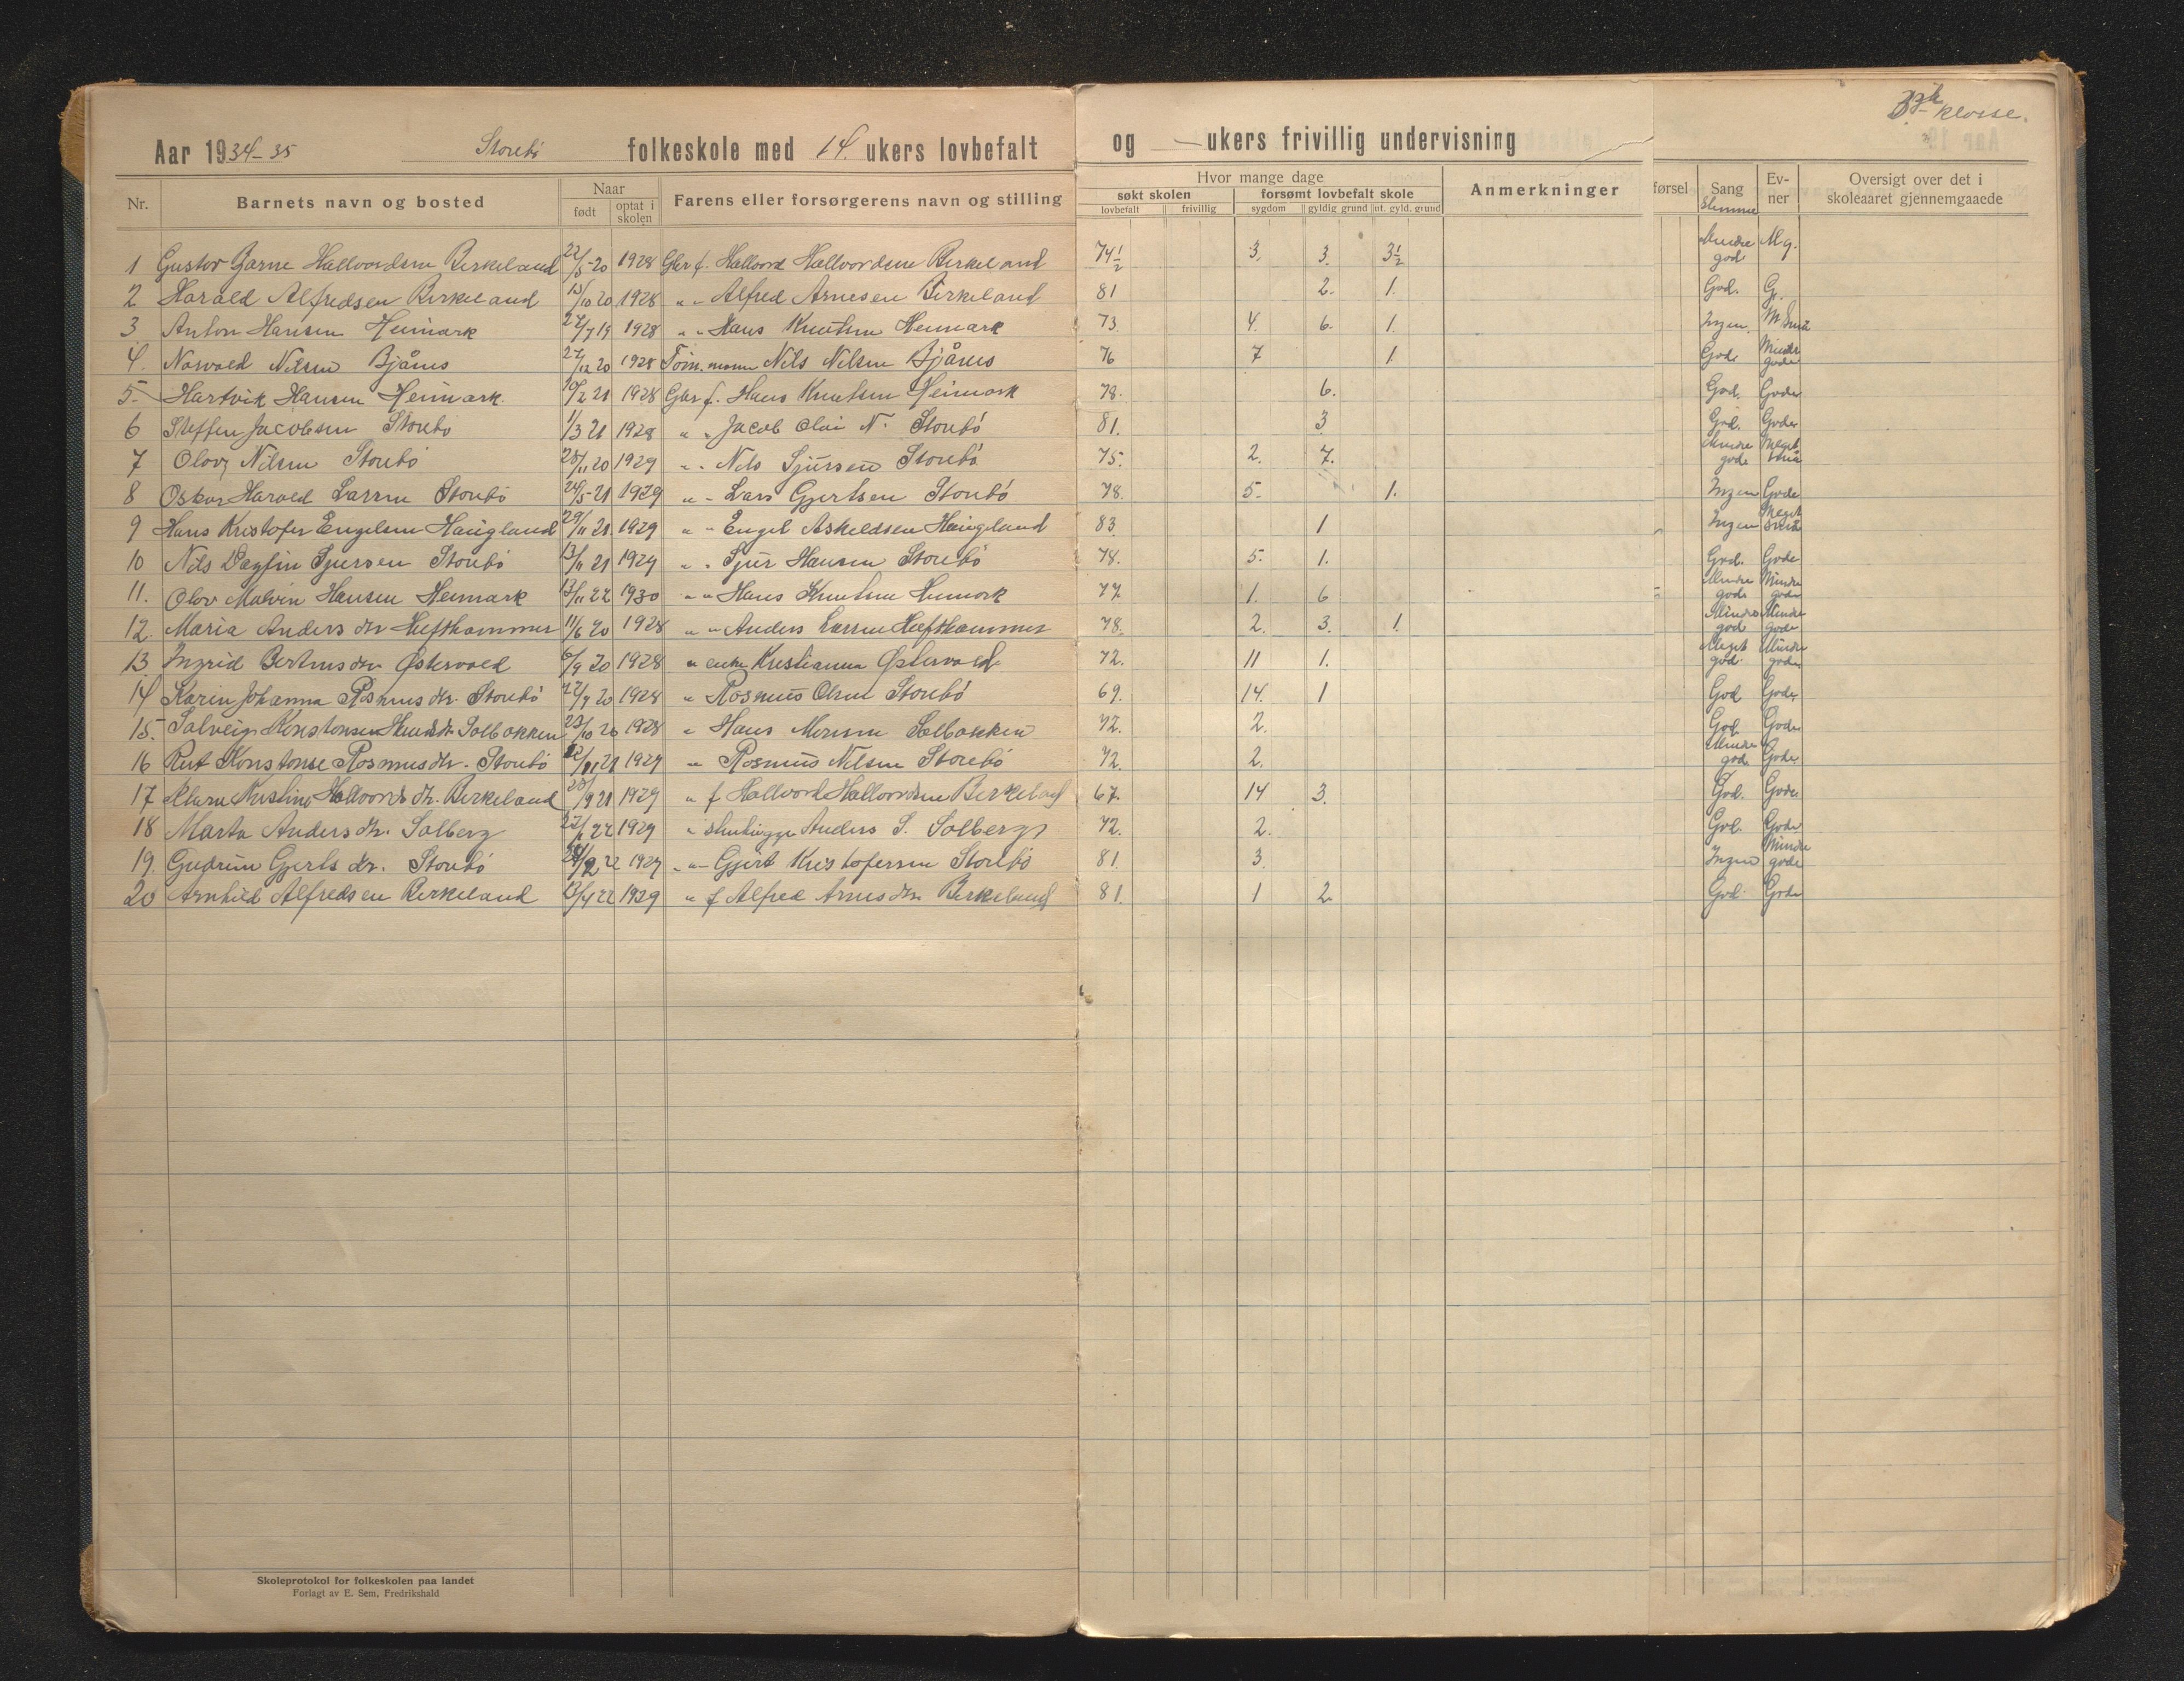 3dje klasse.
Aar 1934-35 Storebö folkeskole med 14. ukers lovbefalt og — ukers frivillig undervisning
Nr. Barnets navn og bosted Naar født optat i skolen Farens eller forsørgerens navn og stilling Hvor mange dage søkt skolen lovbefalt frivillig forsømt lovbefalt skole sygdom gyldig grund ut. gyld. grund Anmerkninger førsel Sang Stemme Evner Oversigt over det i skoleaaret gjennemgaaede
1 Gustav Bjarne Hallvordsen Birkeland 22/5-20 1928 Gbr f. Hallvord Hallvordsen Birkeland 74½ 3. 3. 3½ Mindre god Mg.
2 Harald Alfredsen Birkeland 13/10 20 1928 " " Alfred Arnesen Birkeland 81 2. 1. God. G.
3 Anton Hansen Heimark 24/7 19 1928 " " Hans Knutsen Heimark 73 4. 6. 1. Ingen. M små
4. Norvald Nilsen Bjånes 27/12 20 1928 Töm.mann Nils Nilsen Bjånes 76 7 1 Gode Mindre gode
5. Hartvik Hansen Heimark. 10/2 21 1928 Gbr f. Hans Knutsen Heimark 78. 6. God. Gode
6 Steffen Jacobsen Storebö 1/3 21 1928 " " Jacob Olai N. Storebö 81. 3 God. Gode
7 Olav Nilsen Storebö 28/11 20 1929 " " Nils Sjursen Storebö 75. 2. 7. Mindre gode Meget små
8 Oskar Harald Larsen Storebö 24/5-21 1929 " " Lars Gjertsen Storebö 78. 5. 1. Ingen Gode
9 Hans Kristofer Engelsen Haugland 29/11 21 1929 " " Engel Askeldsen Haugland 83 1 Ingen Meget små
10 Nils Dagfin Sjursen Storebö 13/11 21 1929 " " Sjur Hansen Storebö 78. 5. 1. God. Gode
11. Olav Malvin Hansen Heimark 13/11 22 1930 " " Hans Knutsen Heimark 77 1. 6 Mindre gode Mindre gode
12. Maria Anders dtr Hufthammer 11/6 20 1928 " " Anders Larsen Hufthammer 78. 2. 3. 1. Mindre god Mindre gode
13 Ingrid Bertins dtr Østervold 6/9 20 1928 " enke Kristianna Østervold 72. 11 1. Meget god. Mindre gode
14 Karin Johanna Rasmus dtr. Storebö 22/9 20 1928 " Rasmus Olsen Storebö 69. 14. 1 God Gode
15. Solveig Konstanse Hans dtr Solbakken 23/10 20 1928 " Hans Solbakken 72. 2. God. Gode
16 Rut Konstanse Rasmus dtr. Storebö 1929 " Rasmus Nilsen Storebö 72. 2. Mindre gode Gode
17 Klara Kristine Hallvords dtr. Birkeland 28/9 21 1929 " f Hallvord Hallvordsen Birkeland 67. 14 3. God. Gode
18 Marta Anders dtr. Solberg 1929 " Anders S. Solberg 72. 2. God. Gode
19. Gudrun Gjerts dtr. Storebö 1929 " " Gjert Kristofersen Storebö 81. 3. Ingen Mindre gode
20 Arnhild Alfredsen Birkeland 13/4 22 1929 " f Alfred Arnes Birkeland 81. 1 2. God. Gode
Skoleprotokol for folkeskolen paa landet
Forlagt av E. Sem, Fredrikshald